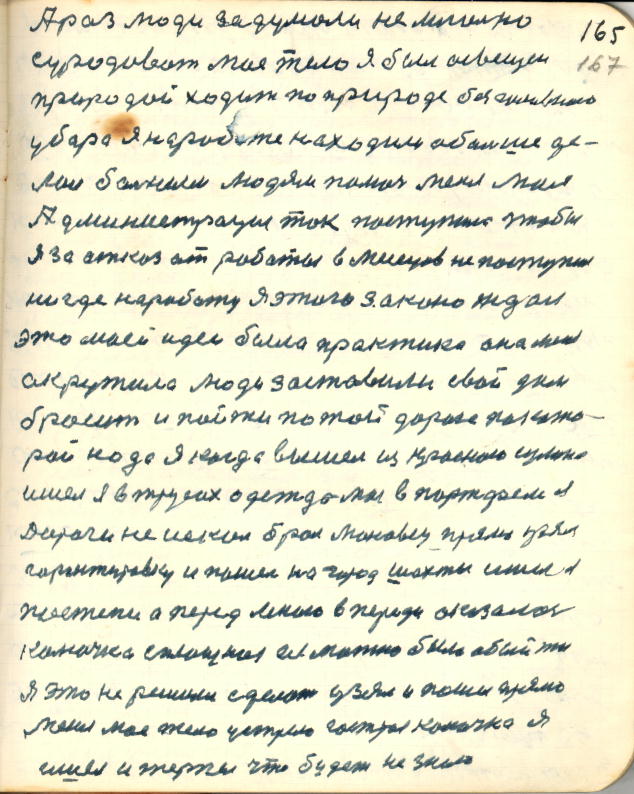 А раз люди задумали немыслно 165
суродоват мое тело я был освещен 167
природой ходит по природе без
убара я на работе находил обоиие де-
лал больным людям помоч меня моя
Администрация ток поступила чтобы
я за отказ от работы в месецов не поступил
нигде на работу я этого законо ждал
это моей идеи была практика она меня
окружила люди заставили свой дом
бросит и пойти по той дороге по кото-
рой нада я когда вышел из Красного сулина
ишел я в трусах одежда мая в портфели я
Дороги не искал брал маковец прямо узял
горантировку и пошел на город шахты ишел я
постепи а перед мною впереди оказалос
колючка сплошная ее можно было обойти
я это не решил сделат узял и пошел прямо
меня мое тело устрело гострая колючка я
ишел и терпел что будет не знаю